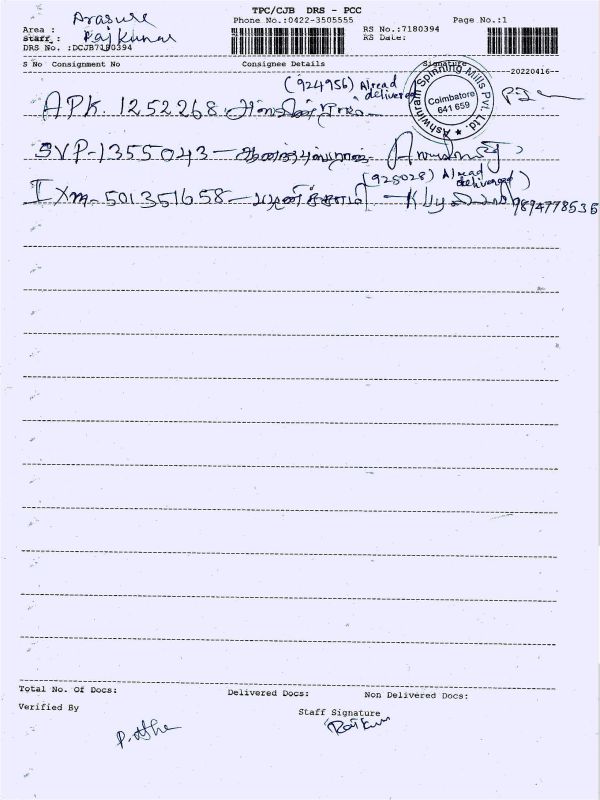 TPC/CJB DRS - PCC
Phone No.:0422-3505555
Page No.:1
Area : Arasure
RS No.:7180394
Staff : Rajkumar
RS Date:
DRS No. :DCJB7180394
S No Consignment No Consignee Details Signature
20220416
(924956) Alread
delivered
APK. 1252268.
Ashwinram Spinning Mills Pvt. Ltd.
Coimbatore
641 659
SVP-1355043-
(925028) Alread
delivered)
IXM-501351658- 9894778536
Total No. Of Docs: Delivered Docs: Non Delivered Docs:
Verified By
Staff Signature
Rajkum